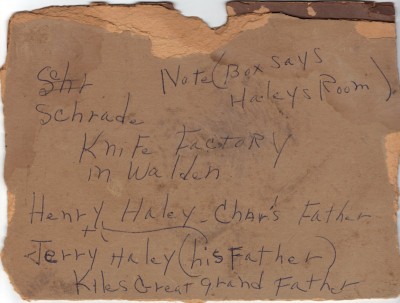 Schr Note (Box says
Schrade Haleys Room).
Knife Factory
in Walden
Henry Haley - Char's Father
Jerry Haley (his Father)
Kiles Great grand Father